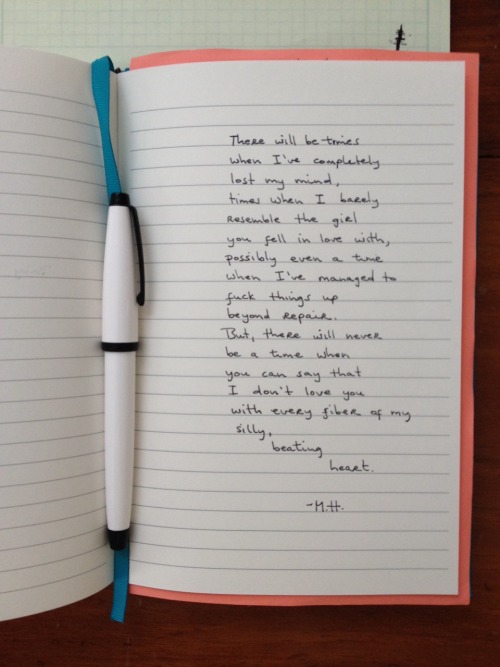 There will be times
when I've completely
lost my mind,
times when I barely
resemble the girl
you fell in love with,
possibly even a time
when I've managed to
fuck things up
beyond repair.
But, there will never
be a time when
you can say that
I don't love you
with every fiber of my
silly,
beating
heart.
-M.H.